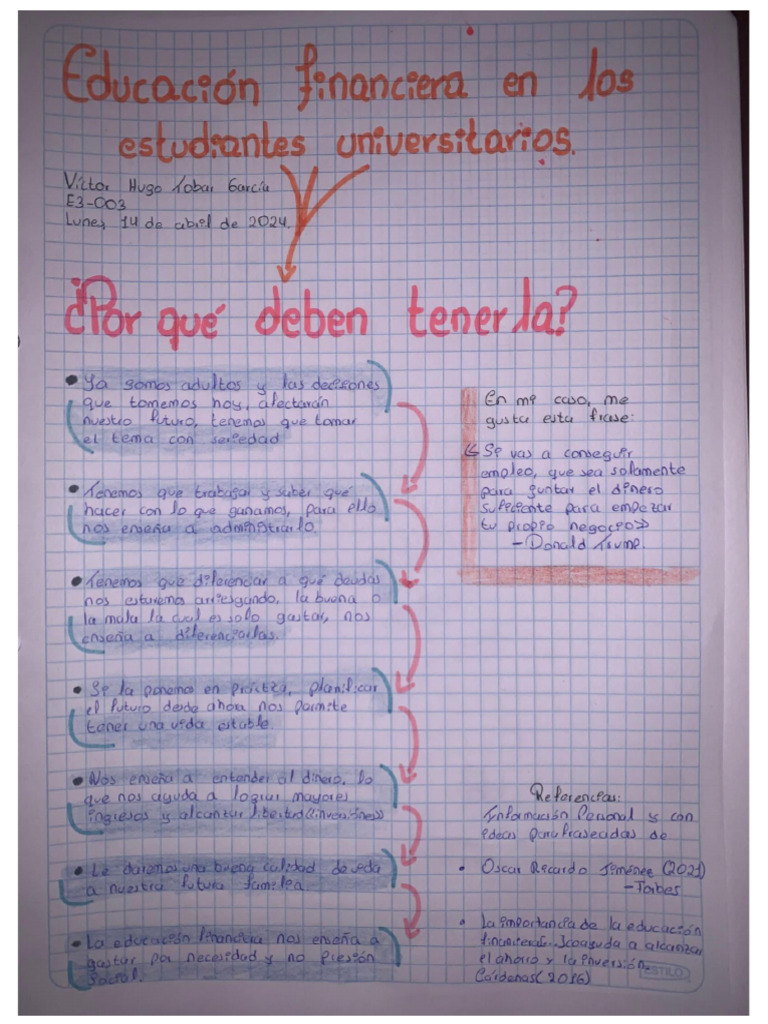 Educación financiera en los
estudiantes universitarios.
Víctor Hugo Tobar García
E3-003
Lunes, 14 de abril de 2024.
¿Por qué deben tenerla?
• Ya somos adultos y las decisiones
que tomemos hoy, afectarán
nuestro futuro, tenemos que tomar
el tema con seriedad
• Tenemos que trabajar y saber qué
hacer con lo que ganamos, para ello
nos enseña a administrarlo.
• Tenemos que diferenciar a qué deudas
nos estaremos arriesgando, la buena o
la mala la cual es solo gastar, nos
enseña a diferenciarlas.
• Si la ponemos en práctica, planificar
el futuro desde ahora nos permite
tener una vida estable.
• Nos enseña a entender al dinero, lo
que nos ayuda a lograr mayores
ingresos y alcanzar libertad (inversiones)
• Le daremos una buena calidad de vida
a nuestra futura familia.
• La educación financiera nos enseña a
gastar por necesidad y no presión
social.
En mi caso, me
gusta esta frase:
«Si vas a conseguir
empleo, que sea solamente
para juntar el dinero
suficiente para empezar
tu propio negocio»
– Donald Trump.
Referencias:
Información Personal y con
ideas parafraseadas de
• Oscar Ricardo Jiménez (2021)
– Forbes
• La importancia de la educación
financiera. Coayuda a alcanzar
el ahorro y la inversión.
Cárdenas (2016)
ESTILO